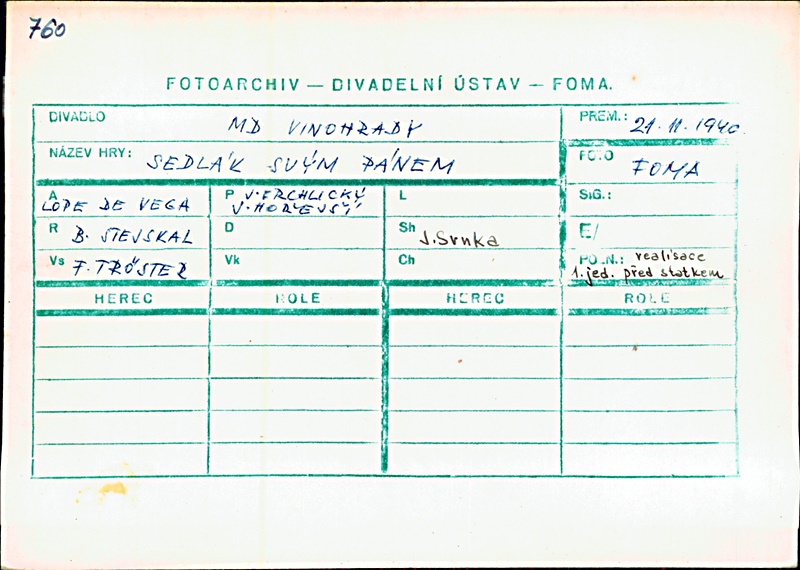 760
FOTOARCHIV — DIVADELNÍ ÚSTAV — FOMA.
DIVADLO MD VINOHRADY PREM.: 21.11.1940.
NÁZEV HRY: SEDLÁK SVÝM PÁNEM FOTO FOMA
A LOPE DE VEGA P J. VRCHLICKÝ L SIG.:
V. HOŘEJŠÍ
R B. STEJSKAL D Sh J. Srnka E/
Vs F. TRÖSTER Vk Ch POZN.: realisace
1. jed. před statkem
HEREC ROLE HEREC ROLE